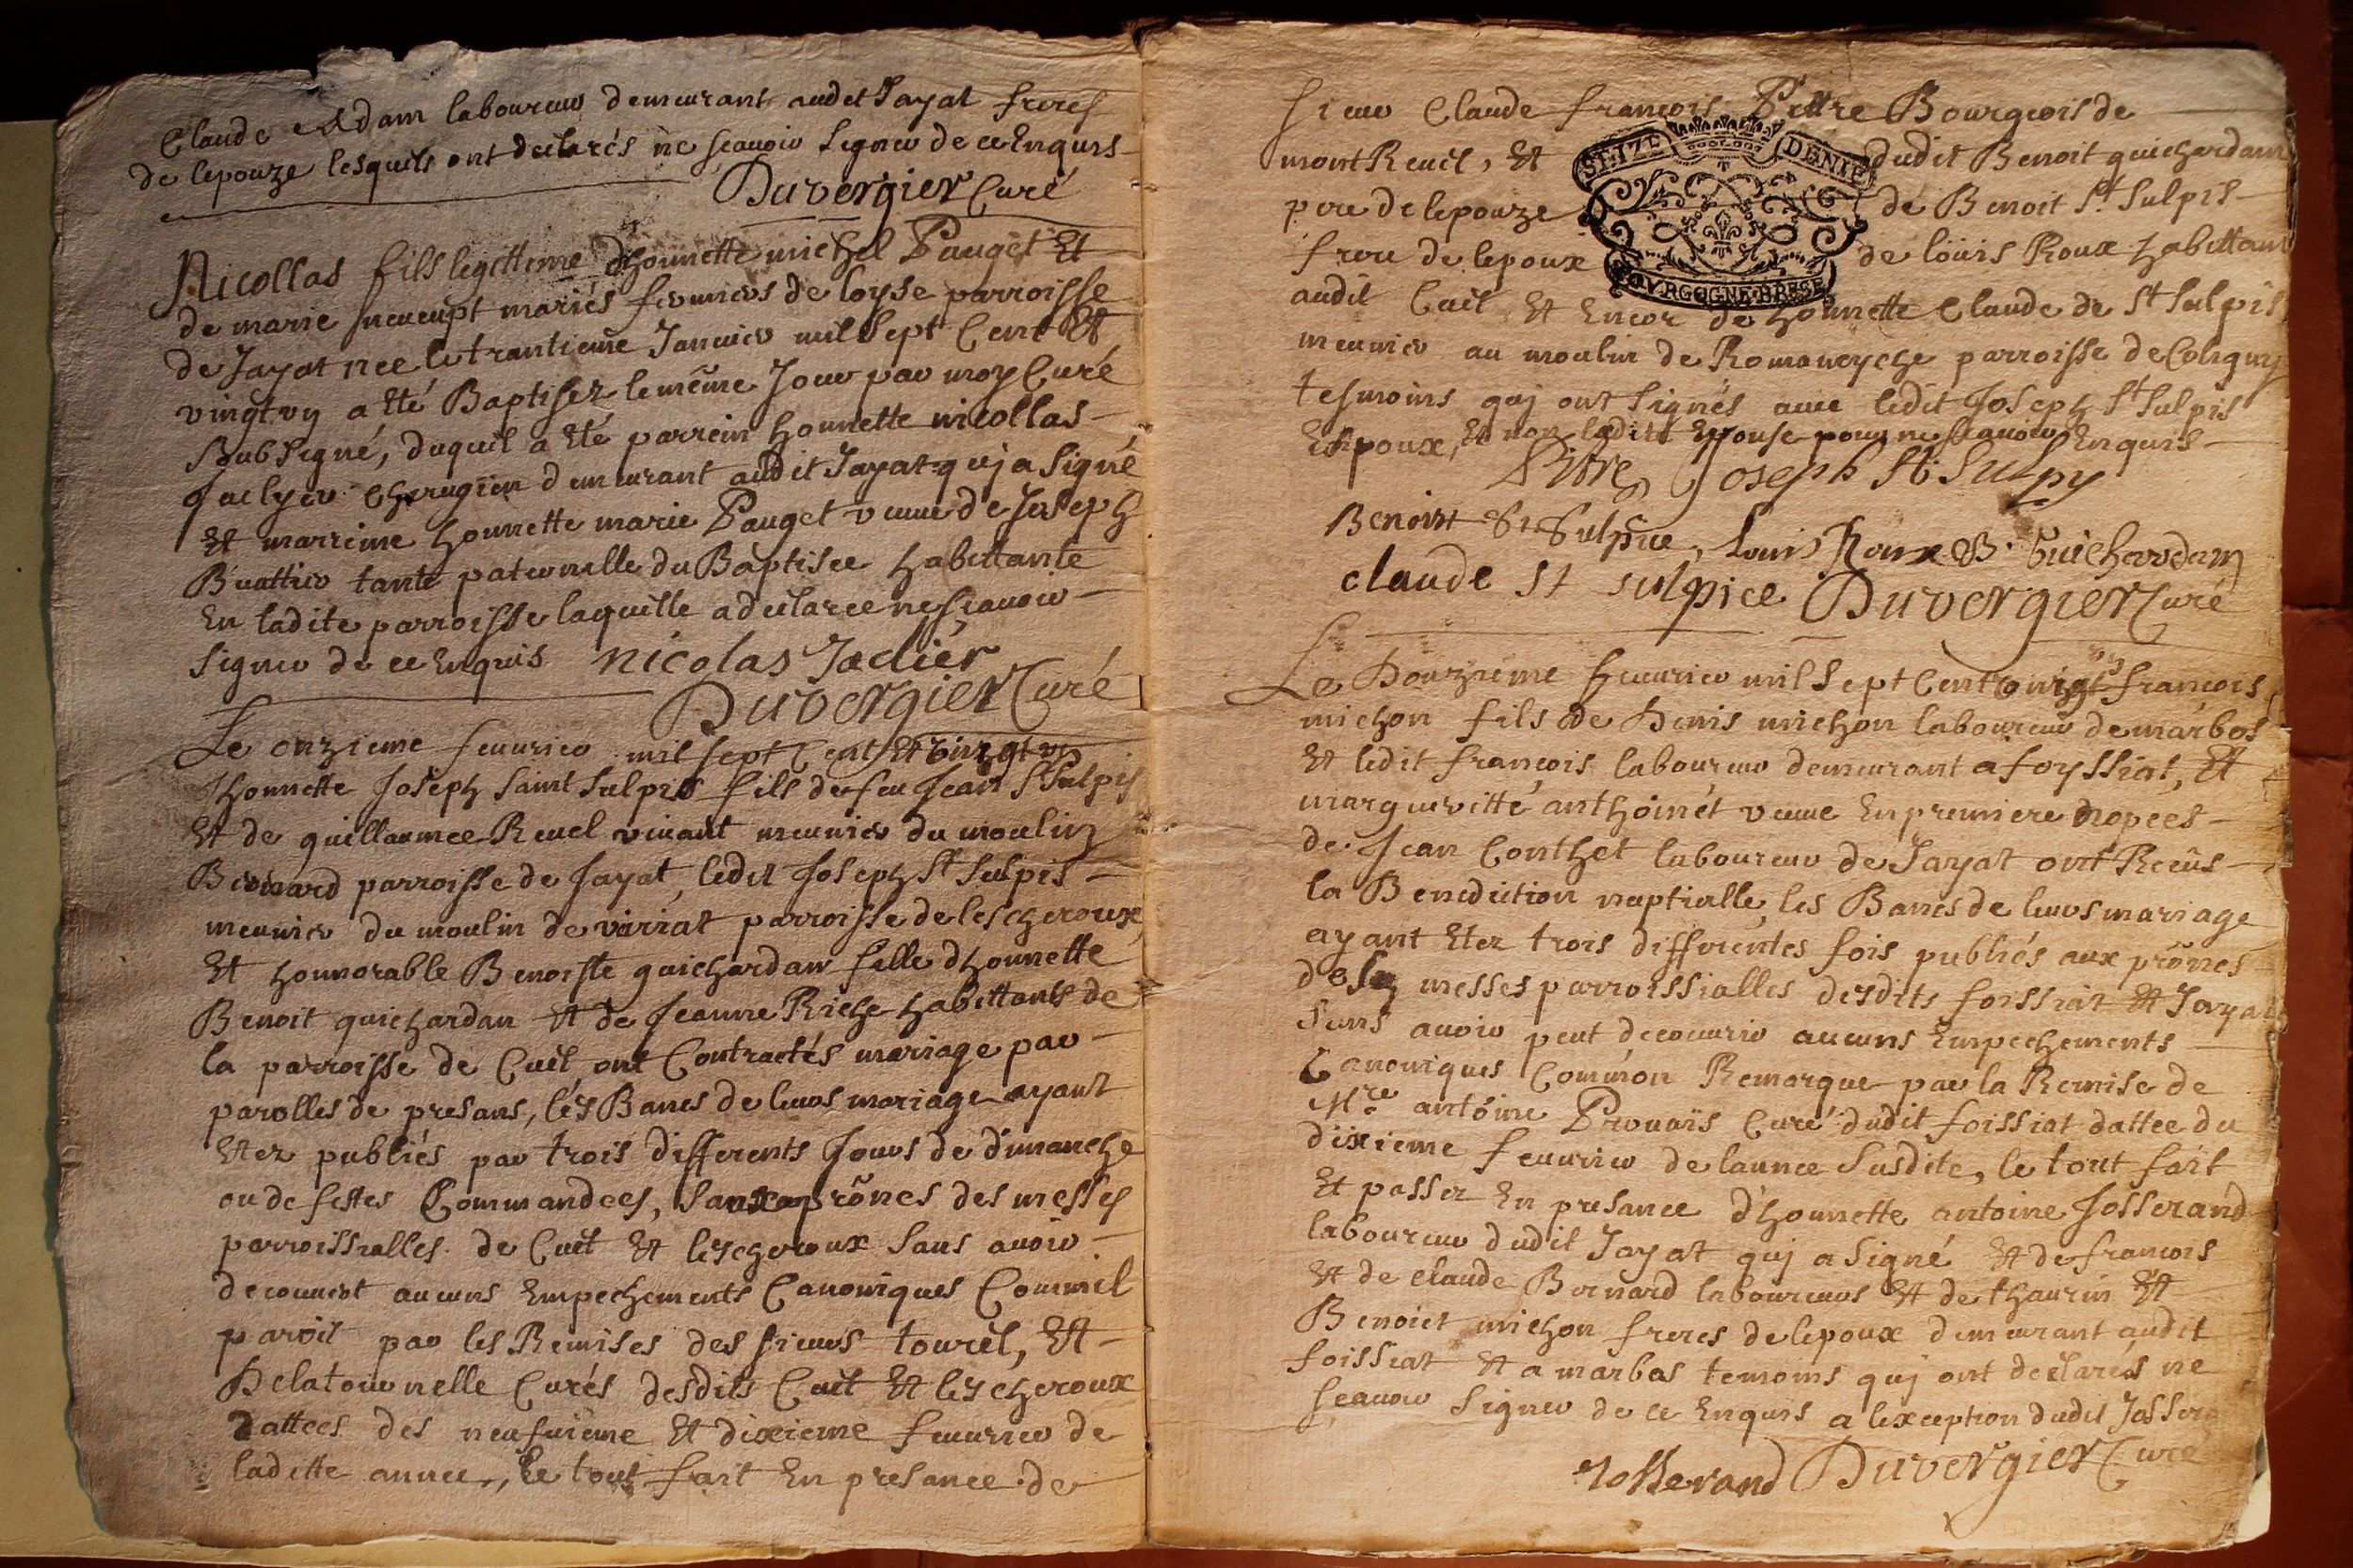 Claude Adam laboureur demeurant audet Jayat freres
de lepouze lesquels ont declarés ne scauoir signer de ce Enquis
Duvergier Curé
Nicollas fils legitteme d'honnette michel Pauget Et
de marie mariés fermiers de loyse parroisse
de Jayat nee le trantieme Januier mil sept Cent Et
vingt vn a Eté Baptisez le même Jour par moy Curé
Subsigné, duquel a Eté parrein honnette nicollas
chirugien demeurant audit Jayat quj a Signé
Et marreine honnette marie Pauget veuue de Joseph
Buattier tante paternelle du Baptisee habittante
En ladite parroisse laquelle a declaree ne scauoir
Signer de ce Enquis nicolas Jaclier
Duvergier Curé
Le onzieme feuurier mil sept Cent Et vingt vn
honnette Joseph Saint Sulpis fils de feu Jean St Sulpis
Et de guillaumee Reuel viuant meunier du moulin
Bernard parroisse de Jayat, ledit Joseph St Sulpis
meunier du moulin de viriat parroisse de lescheroux
Et honnorable Benoiste guichardan fille dhonnette
Benoit guichardan Et de Jeanne Riche habittants de
la parroisse de Cuet ont Contractés mariage par
parolles de presans, les Bancs de leurs mariage ayant
Etez publiés par trois differents Jours de dimanche
ou de festes Commandees, aux prônes des messes
parroissialles de Cuet Et lescheroux Sans auoir
decouuert aucuns Empechements Canoniques Commil
paroit par les Remises des sieurs tourel, Et
Delatournelle Curés desdits Cuet Et lescheroux
Dattees des neufuieme Et dixieme feuurier de
laditte annee, le tout fait En presance de
sieur Claude francois Pittre Bourgeois de
montReuel, Et dudit Benoit guichardan
pere de lepouze de Benoit St Sulpis
frere de lepoux de loüis Roux habittant
audit Cuet Et Encor de honnette Claude de St Sulpis
meunier au moulin de Romaneyche parroisse de Coligny
tesmoins quj ont Signés auec ledit Joseph St Sulpis
Epoux, Et non ladite Epouse pour ne scauoir Enquis
Pittre Joseph St Sulpy
Benoist St Sulpice, Louis Roux B. Guichardan
claude St sulpice Duvergier Curé
Le Douzieme feuurier mil Sept Cent vingt vn francois
michon fils de Denis michon laboureur de marbos
Et ledit francois laboureur demeurant a foyssiat, Et
marguerittе anthoinet veuue En premiere nopces
de Jean Conthet laboureur de Jayat ont Receus
la Benediction nuptialle, les Bancs de leurs mariage
ayant Etez trois differentes fois publiés aux prônes
des messes parroissialles desdits foissiat Et Jayat
Sans auoir peut decouurir aucuns Empechements
Canoniques Common Remarque par la Remise de
Mre antoine Prouaïs Curé dudit foissiat dattee du
dixieme feuurier de lannee Susdite, le tout fait
Et passer En presance d'honnette antoine Josserand
laboureur dudit Jayat quj a Signé Et de francois
Et de Claude Bernard laboureurs Et de thaurin Et
Benoiet michon freres de lepoux demeurant audit
foissiat Et a marbos temoins quj ont declarés ne
Scauoir Signer de ce Enquis a lexception dudit
Josserand Duvergier Curé
SEIZE DENIE
BOVRGOGNE·BRESSE